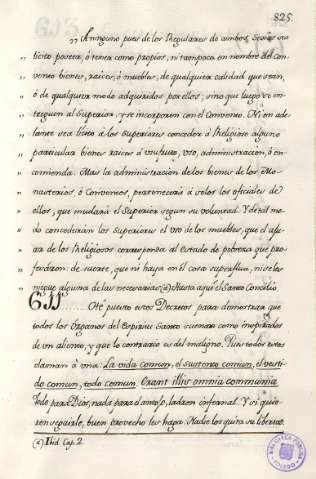 825.
„ A ninguno pues de los Regulares de ambos Sexos sea
„ licito poseer, ó tener como propios, ni tampoco en nombre del Con-
„ vento bienes, raíces, ó muebles, de qualquiera calidad que sean,
„ ó de qualquiera modo adquiridos por ellos, sino que luego se en-
„ treguen al Superior, y se incorporen con el Convento. Ni en ade-
„ lante sea licito á los Superiores conceder á Religioso alguno
„ particular bienes raices á usufruto, uso, administracion, ó en-
„ comienda. Mas la administracion de los bienes de los Mo-
„ nasterios, ó Conventos, pertenecerá á solos los oficiales de
„ ellos, que mudará el Superior segun su voluntad. Y de tal mo-
„ do concederán los Superiores el uso de los muebles, que el
„ de los Religiosos corresponda al estado de pobreza que pro-
„ fesaron: de suerte, que ni haya en él cosa superflua, ni se les
niegue alguna de las necesarias (a) Hasta aquí el Santo Concilio
611 ...... Hé puesto estos Decretos para demostrar que
todos los Organos del Espiritu Santo suenan como inspirados
de un aliento, y que lo contrario es del indigno. Pues todos estos
claman á una: La vida comun, el sustento comun, el vesti-
do comun, todo comun. Erant illis omnia communia
Todo para Dios, nada para el
enseguirle, buen provecho les haga. Nadie los quita su libertad.
(a) Ibid. Cap. 2.